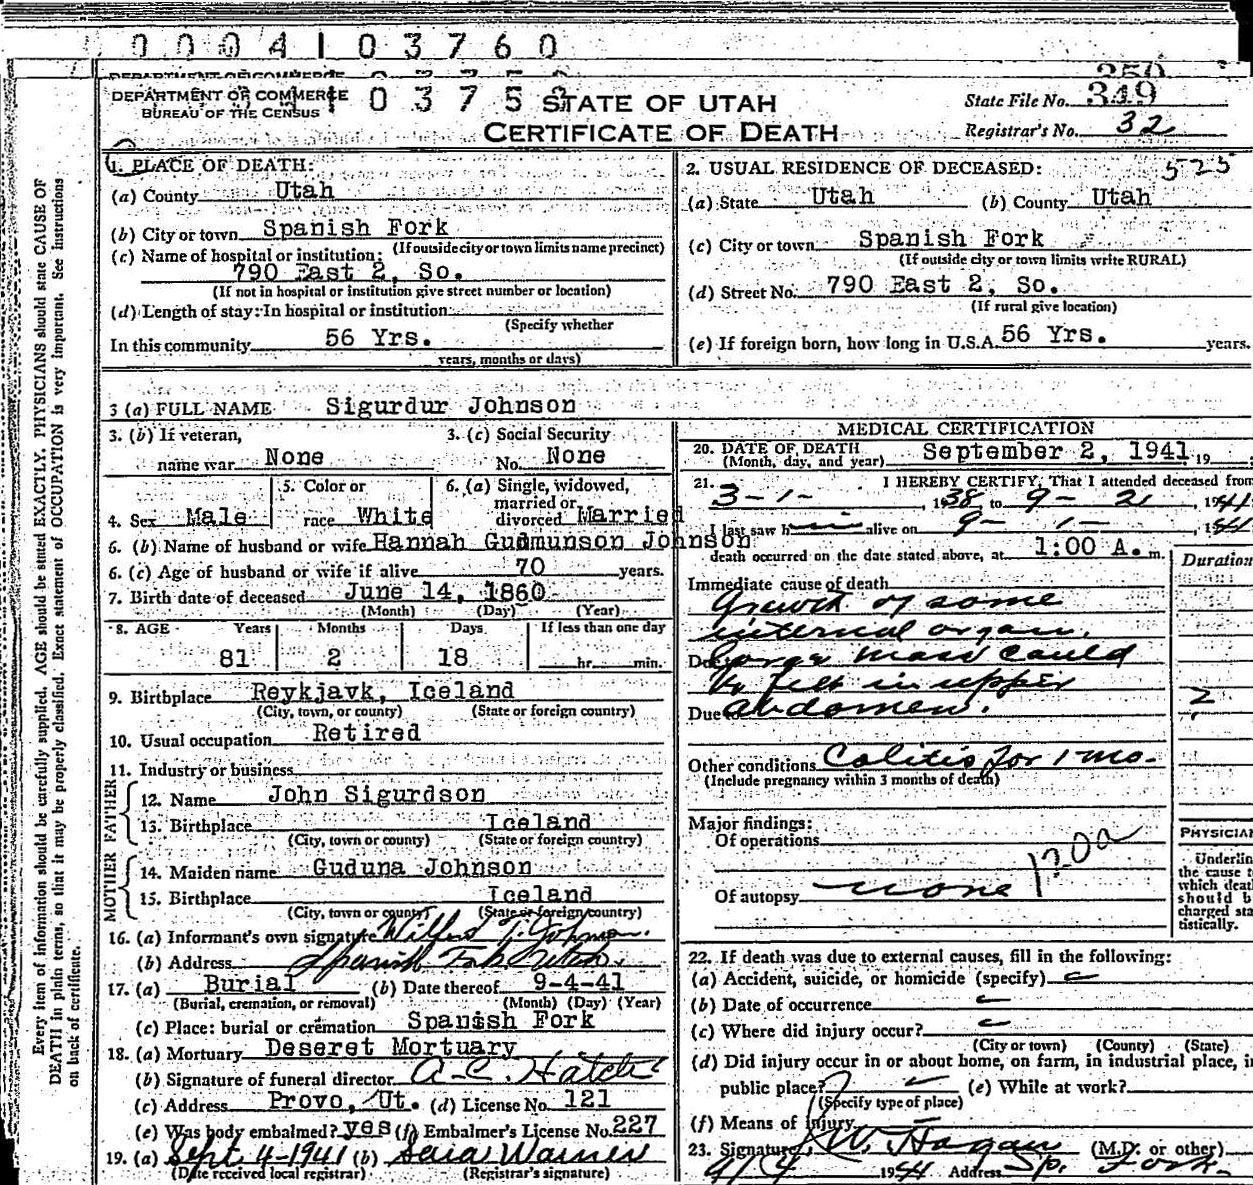 0004103760
DEPARTMENT OF COMMERCE
BUREAU OF THE CENSUS
STATE OF UTAH
CERTIFICATE OF DEATH
State File No. 349
Registrar's No. 32
1. PLACE OF DEATH:
(a) County Utah
(b) City or town Spanish Fork
(If outside city or town limits name precinct)
(c) Name of hospital or institution:
790 East 2, So.
(If not in hospital or institution give street number or location)
(d) Length of stay: In hospital or institution
(Specify whether
In this community 56 Yrs.
years, months or days)
2. USUAL RESIDENCE OF DECEASED: 525
(a) State Utah (b) County Utah
(c) City or town Spanish Fork
(If outside city or town limits write RURAL)
(d) Street No. 790 East 2, So.
(If rural give location)
(e) If foreign born, how long in U.S.A. 56 Yrs. years.
3 (a) FULL NAME Sigurdur Johnson
3. (b) If veteran, name war None
3. (c) Social Security No. None
4. Sex Male
5. Color or race White
6. (a) Single, widowed, married or divorced Married
6. (b) Name of husband or wife Hannah Gudmunson Johnson
6. (c) Age of husband or wife if alive 70 years.
7. Birth date of deceased June 14, 1860
(Month) (Day) (Year)
8. AGE Years Months Days If less than one day
81 2 18 hr. min.
9. Birthplace Reykjavk, Iceland
(City, town, or county) (State or foreign country)
10. Usual occupation Retired
11. Industry or business
FATHER
12. Name John Sigurdson
13. Birthplace Iceland
(City, town or county) (State or foreign country)
MOTHER
14. Maiden name Guduna Johnson
15. Birthplace Iceland
(City, town or county) (State or foreign country)
16. (a) Informant's own signature Wilford T. Johnson.
(b) Address Spanish Fork Utah.
17. (a) Burial (b) Date thereof 9-4-41
(Burial, cremation, or removal) (Month) (Day) (Year)
(c) Place: burial or cremation Spanish Fork
18. (a) Mortuary Deseret Mortuary
(b) Signature of funeral director A. C. Hatch
(c) Address Provo, Ut. (d) License No. 121
(e) Was body embalmed? yes (f) Embalmer's License No. 227
19. (a) Sept 4-1941 (b) Warner
(Date received local registrar) (Registrar's signature)
MEDICAL CERTIFICATION
20. DATE OF DEATH September 2, 1941, 19
(Month, day, and year)
21. I HEREBY CERTIFY, That I attended deceased from
3-1-, 1938, to 9- 21 -, 1941
I last saw him alive on 9- 1-, 1941
death occurred on the date stated above, at 1:00 A. m.
Duration
Immediate cause of death
Growth of some
internal organ.
Due to Large mass could
be felt in upper
Due to abdomen. ?
Other conditions Colitis for 1 mo.
(Include pregnancy within 3 months of death)
Major findings:
Of operations
Of autopsy none 120a
PHYSICIAN
Underline
the cause to
which death
should be
charged sta
tistically.
22. If death was due to external causes, fill in the following:
(a) Accident, suicide, or homicide (specify)
(b) Date of occurrence
(c) Where did injury occur?
(City or town) (County) (State)
(d) Did injury occur in or about home, on farm, in industrial place, in
public place? (e) While at work?
(Specify type of place)
(f) Means of Injury
23. Signature W. Hagan (M.D. or other)
9/4 1941 Address Sp. Fork
Every item of information should be carefully supplied. AGE should be stated EXACTLY. PHYSICIANS should state CAUSE OF
DEATH in plain terms, so that it may be properly classified. Exact statement of OCCUPATION is very important. See instructions
on back of certificate.